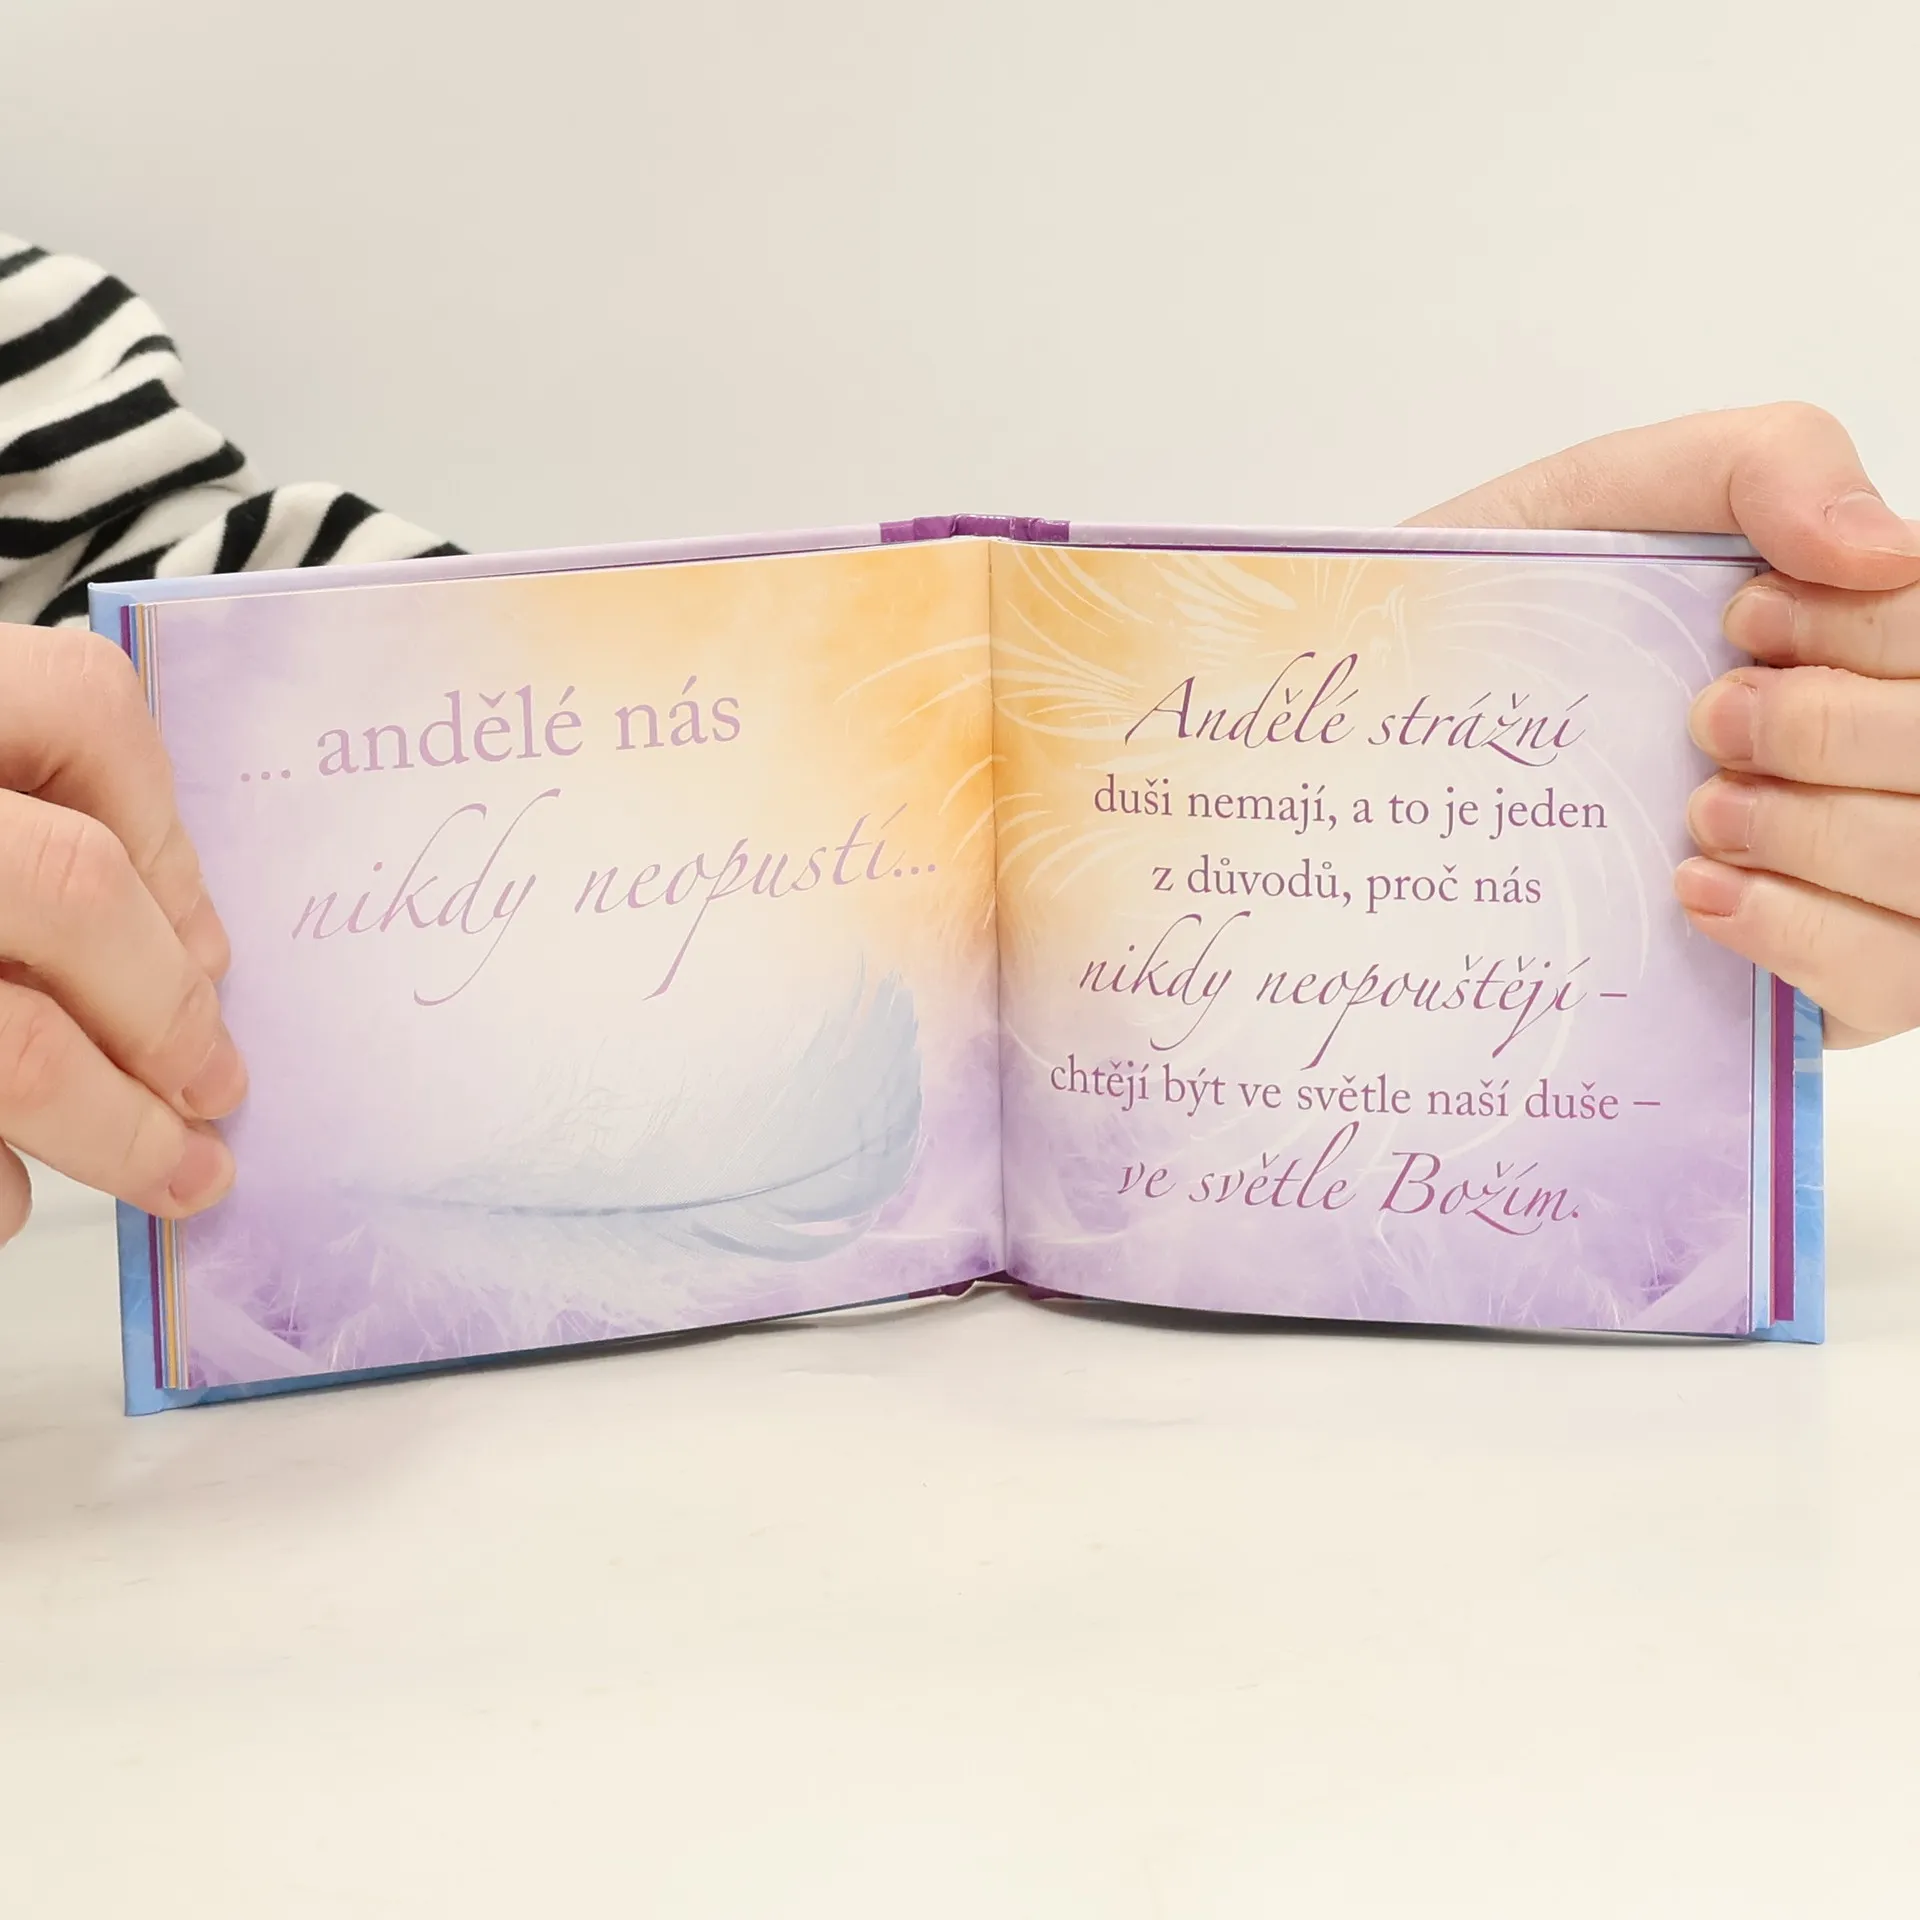 ... andělé nás
nikdy neopustí...
Andělé strážní
duši nemají, a to je jeden
z důvodů, proč nás
nikdy neopouštějí –
chtějí být ve světle naší duše –
ve světle Božím.